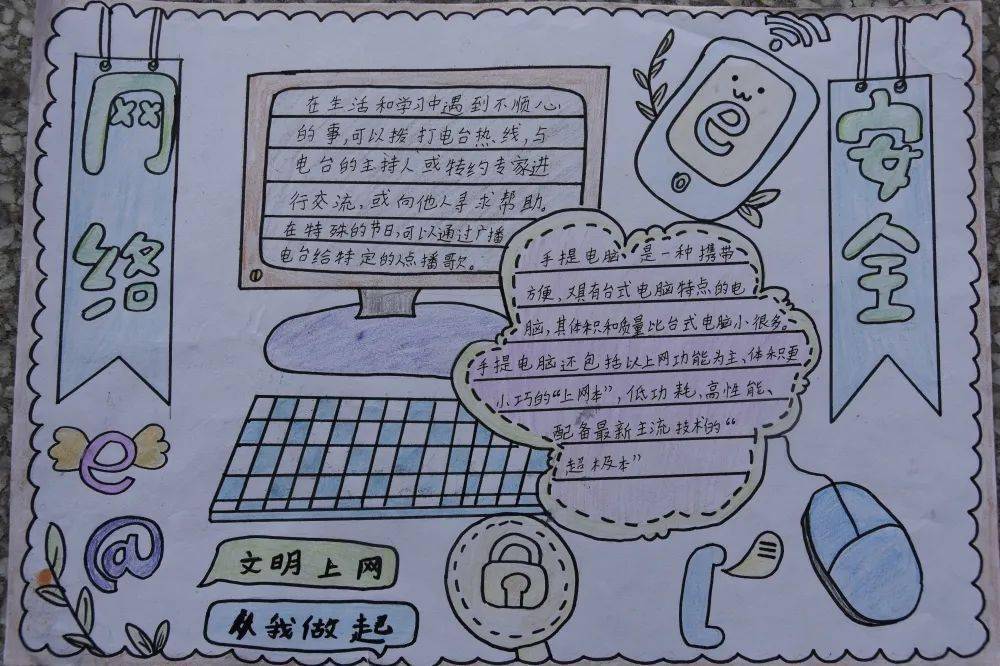 网络
安全
在生活和学习中遇到不顺心
的事,可以拨打电台热线,与
电台的主持人或特约专家进
行交流,或向他人寻求帮助。
在特殊的节日,可以通过广播
电台给特定的人点播歌。
e
手提电脑、是一种携带
方便,又具有台式电脑特点的电
脑,其体积和质量比台式电脑小很多。
手提电脑还包括以上网功能为主、体积更
小巧的“上网本”,低功耗、高性能、
配备最新主流技术的“
超极本”
e
@
文明上网
从我做起